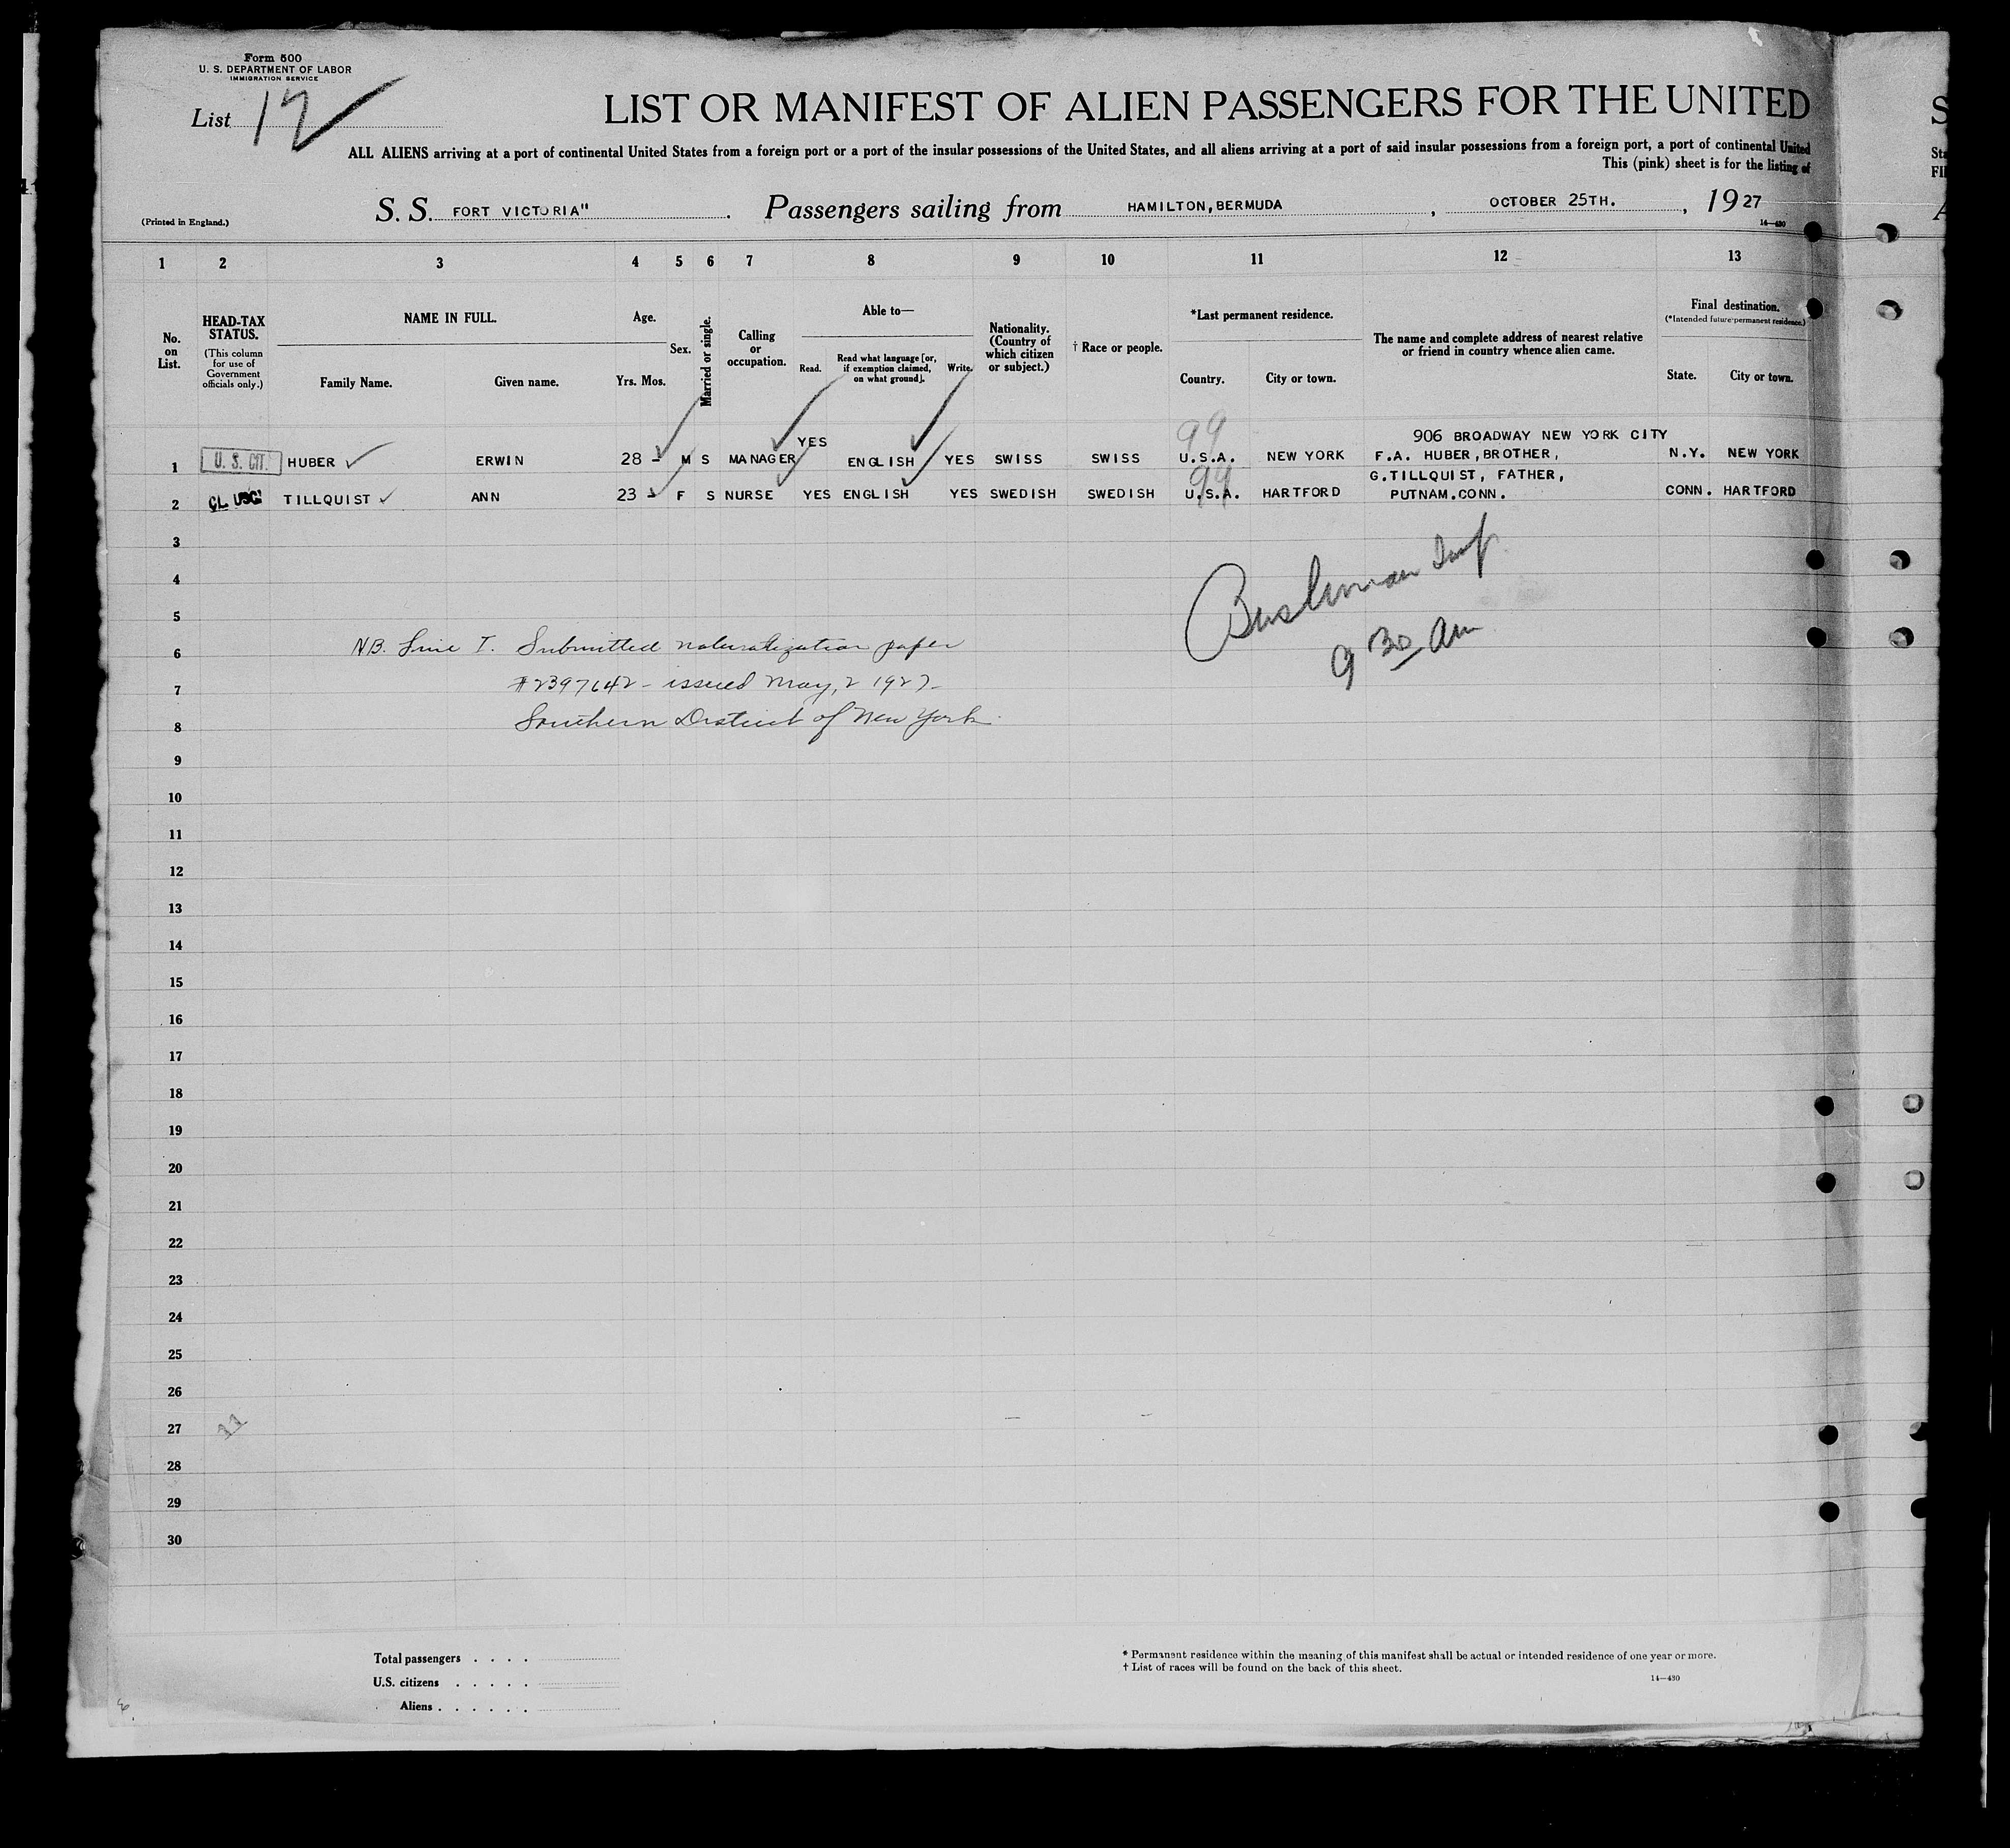 Form 500
U. S. DEPARTMENT OF LABOR
IMMIGRATION SERVICE
List 12
LIST OR MANIFEST OF ALIEN PASSENGERS FOR THE UNITED
ALL ALIENS arriving at a port of continental United States from a foreign port or a port of the insular possessions of the United States, and all aliens arriving at a port of said insular possessions from a foreign port, a port of continental United
This (pink) sheet is for the listing of
(Printed in England.)
S. S. FORT VICTORIA" . Passengers sailing from HAMILTON,BERMUDA , OCTOBER 25TH. , 19 27
14—430
1 2 3 4 5 6 7 8 9 10 11 12 13
No. on List.
HEAD-TAX STATUS.
(This column for use of Government officials only.)
NAME IN FULL.
Family Name. Given name.
Age.
Yrs. Mos.
Sex.
Married or single.
Calling or occupation.
Able to—
Read. Read what language [or, if exemption claimed, on what ground]. Write.
Nationality. (Country of which citizen or subject.)
† Race or people.
*Last permanent residence.
Country. City or town.
The name and complete address of nearest relative or friend in country whence alien came.
Final destination.
(*Intended future permanent residence.)
State. City or town.
99
906 BROADWAY NEW YORK CITY
1 U. S. CIT. HUBER ERWIN 28 - M S MANAGER YES ENGLISH YES SWISS SWISS U.S.A. NEW YORK F.A. HUBER,BROTHER, N.Y. NEW YORK
99
G.TILLQUIST, FATHER,
2 TILLQUIST ANN 23 - F S NURSE YES ENGLISH YES SWEDISH SWEDISH U.S.A. HARTFORD PUTNAM.CONN. CONN. HARTFORD
3
4
5
Bushman Insp
9 30 am
6 NB. Line I. Submitted naturalization paper
7 #2397642 - issued May, 2 1927-
8 Southern District of New York.
9
10
11
12
13
14
15
16
17
18
19
20
21
22
23
24
25
26
27
28
29
30
Total passengers . . . .
U.S. citizens . . . . .
Aliens . . . . . .
* Permanent residence within the meaning of this manifest shall be actual or intended residence of one year or more.
† List of races will be found on the back of this sheet.
14—430